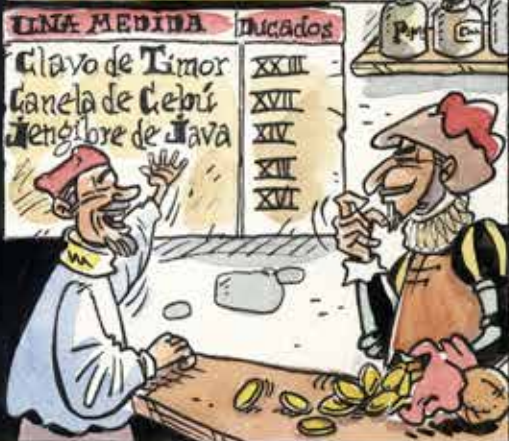 UNA MEDIDA Ducados
Clavo de Timor XXIII
Canela de Cebú XVII
Jengibre de Java XIV
XIII
XVI